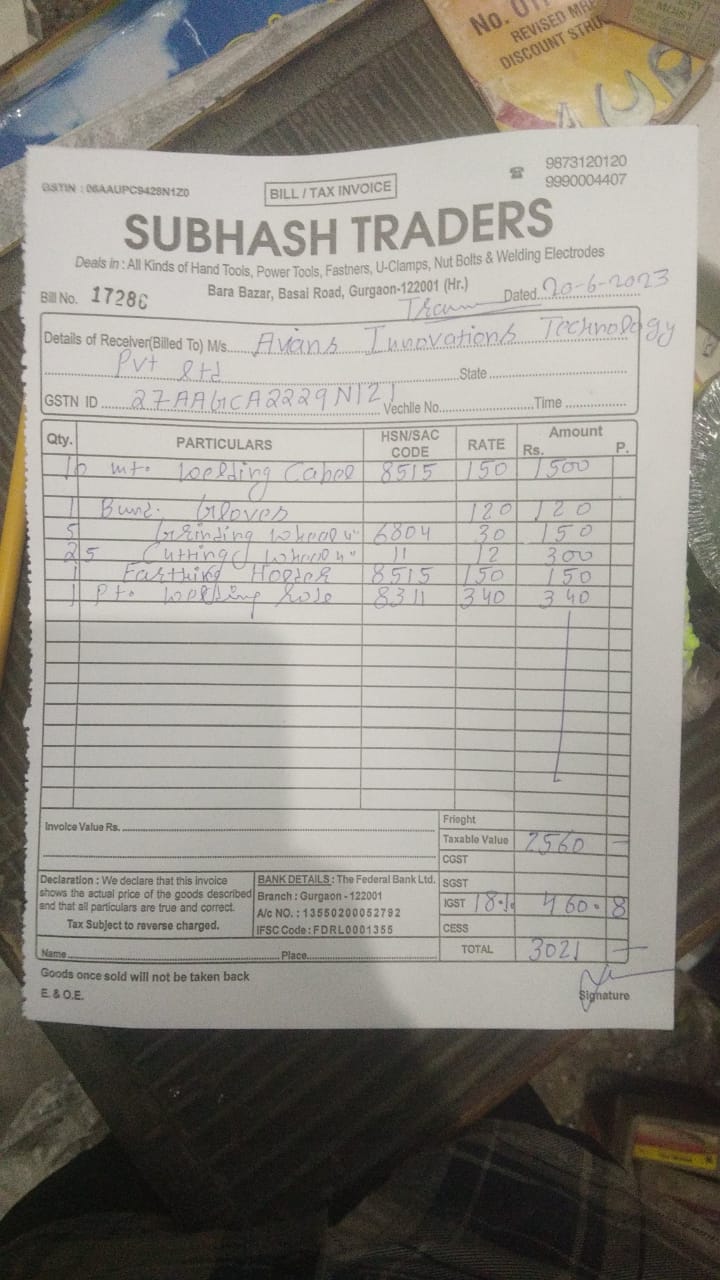 No. 01
REVISED MRP
DISCOUNT STRU
GSTIN : 06AAUPC9428N1Z0
BILL / TAX INVOICE
9873120120
9990004407
SUBHASH TRADERS
Deals in : All Kinds of Hand Tools, Power Tools, Fastners, U-Clamps, Nut Bolts & Welding Electrodes
Bara Bazar, Basai Road, Gurgaon-122001 (Hr.)
Bill No. 17286 Dated 20-6-2023
Details of Receiver(Billed To) M/s. Avians Innovations Technology
Pvt ltd State
GSTN ID 27AAGCA2229N1Z1 Vechile No. Time
Qty. PARTICULARS HSN/SAC CODE RATE Amount Rs. P.
10 mto Welding Cabel 8515 150 1500
1 Bund. Gloves 120 120
5 Grinding Wheel 4" 6804 30 150
25 Cutting Wheel 4" 11 12 300
1 Earthing Holder 8515 150 150
1 Pto Welding 8311 340 340
Invoice Value Rs.
Frieght
Taxable Value 2560 -
CGST
Declaration : We declare that this invoice
shows the actual price of the goods described
and that all particulars are true and correct.
Tax Subject to reverse charged.
BANK DETAILS : The Federal Bank Ltd.
Branch : Gurgaon - 122001
A/c NO. : 13550200052792
IFSC Code : FDRL0001355
SGST
IGST 18% 460.8
CESS
TOTAL 3021 -
Name Place
Goods once sold will not be taken back
E. & O.E.
Signature